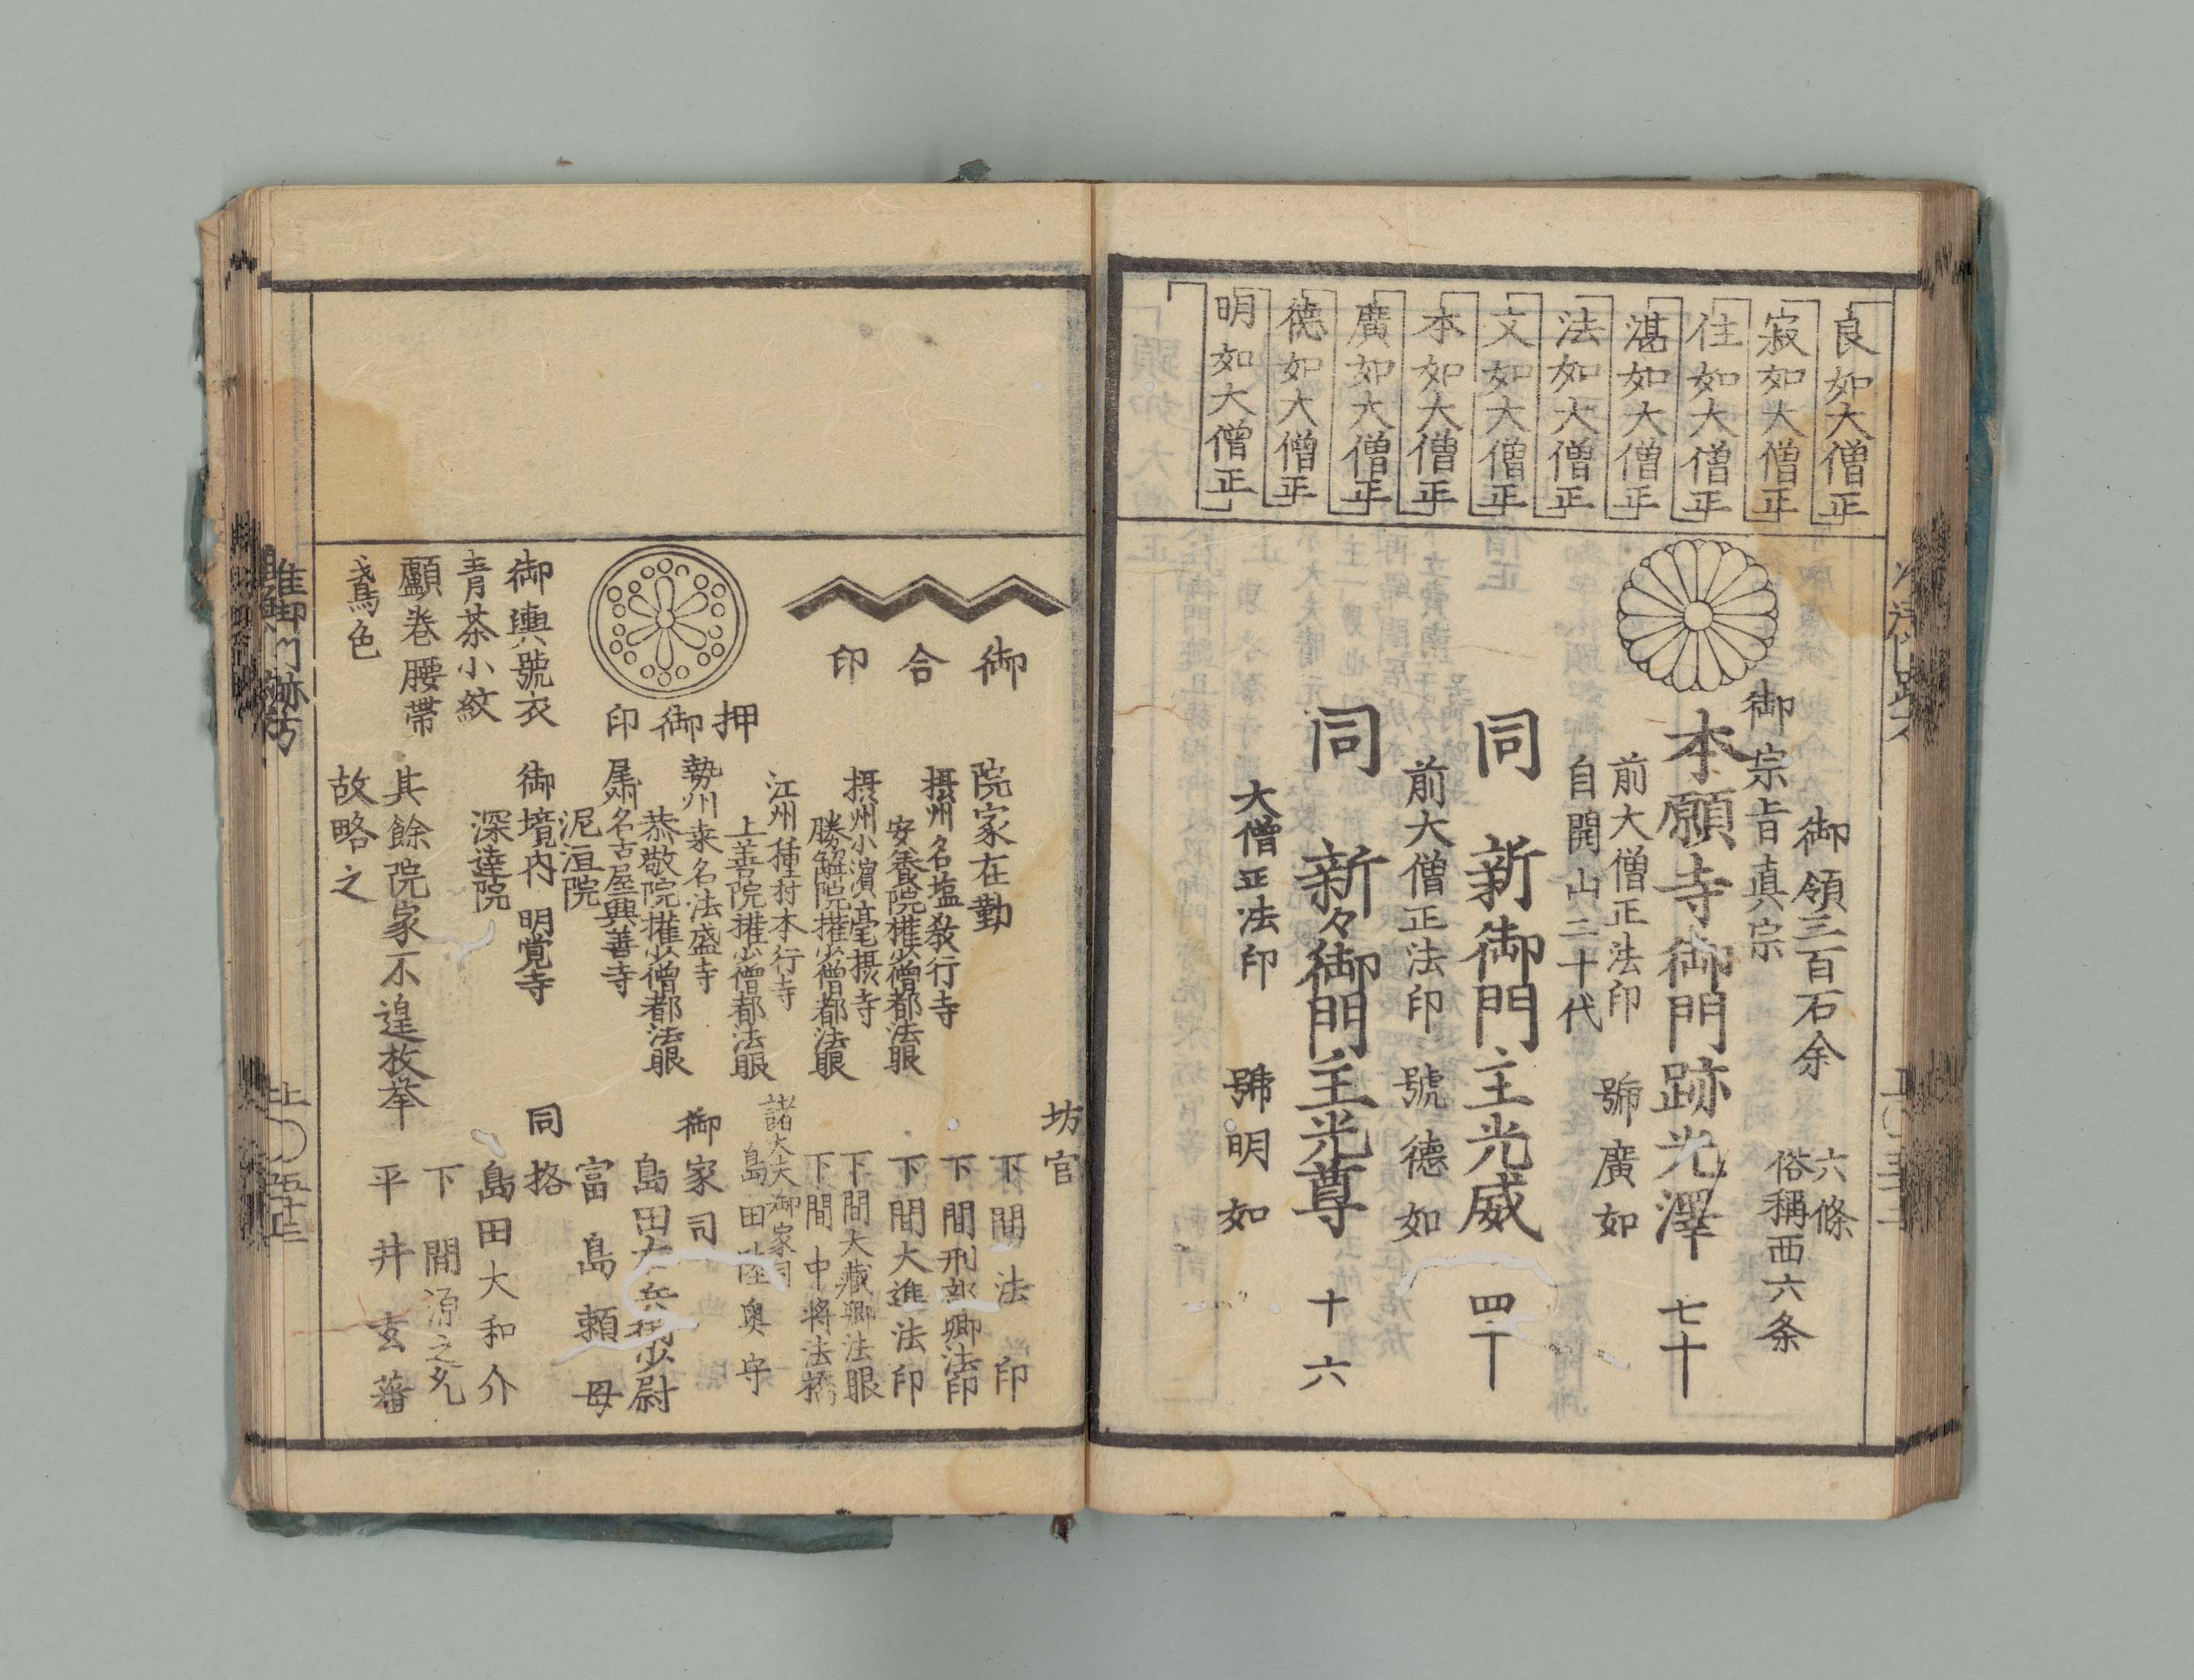 良如大僧正
寂如大僧正
住如大僧正
湛如大僧正
法如大僧正
文如大僧正
本如大僧正
廣如大僧正
德如大僧正
明如大僧正
御領三百石余
六條
俗稱西六条
御宗旨真宗
本願寺御門跡光澤 七十
前大僧正法印
號廣如
自開山二十代
同 新御門主光威 四十
前大僧正法印 號德如
同 新々御門主光尊 十六
大僧正法印 號明如
御合印
押御印
御輿號衣
青茶小紋
顱巻腰帶
鳶色
院家在勤
摂州名塩教行寺
安養院権少僧都法眼
摂州小濵毫摂寺
勝解院権少僧都法眼
江州種村本行寺
上善院権少僧都法眼
勢州桒名法盛寺
恭敬院権少僧都法眼
尾州名古屋興善寺
泥洹院
御境内 明覚寺
深達院
其餘院家不遑枚挙
故略之
坊官
下間法印
下間刑部卿法印
下間大進法印
下間大藏卿法眼
下間中将法橋
諸大夫御家司
島田陸奥守
御家司
島田左兵衛少尉
富島頼母
同格
島田大和介
下間源之允
平井玄蕃